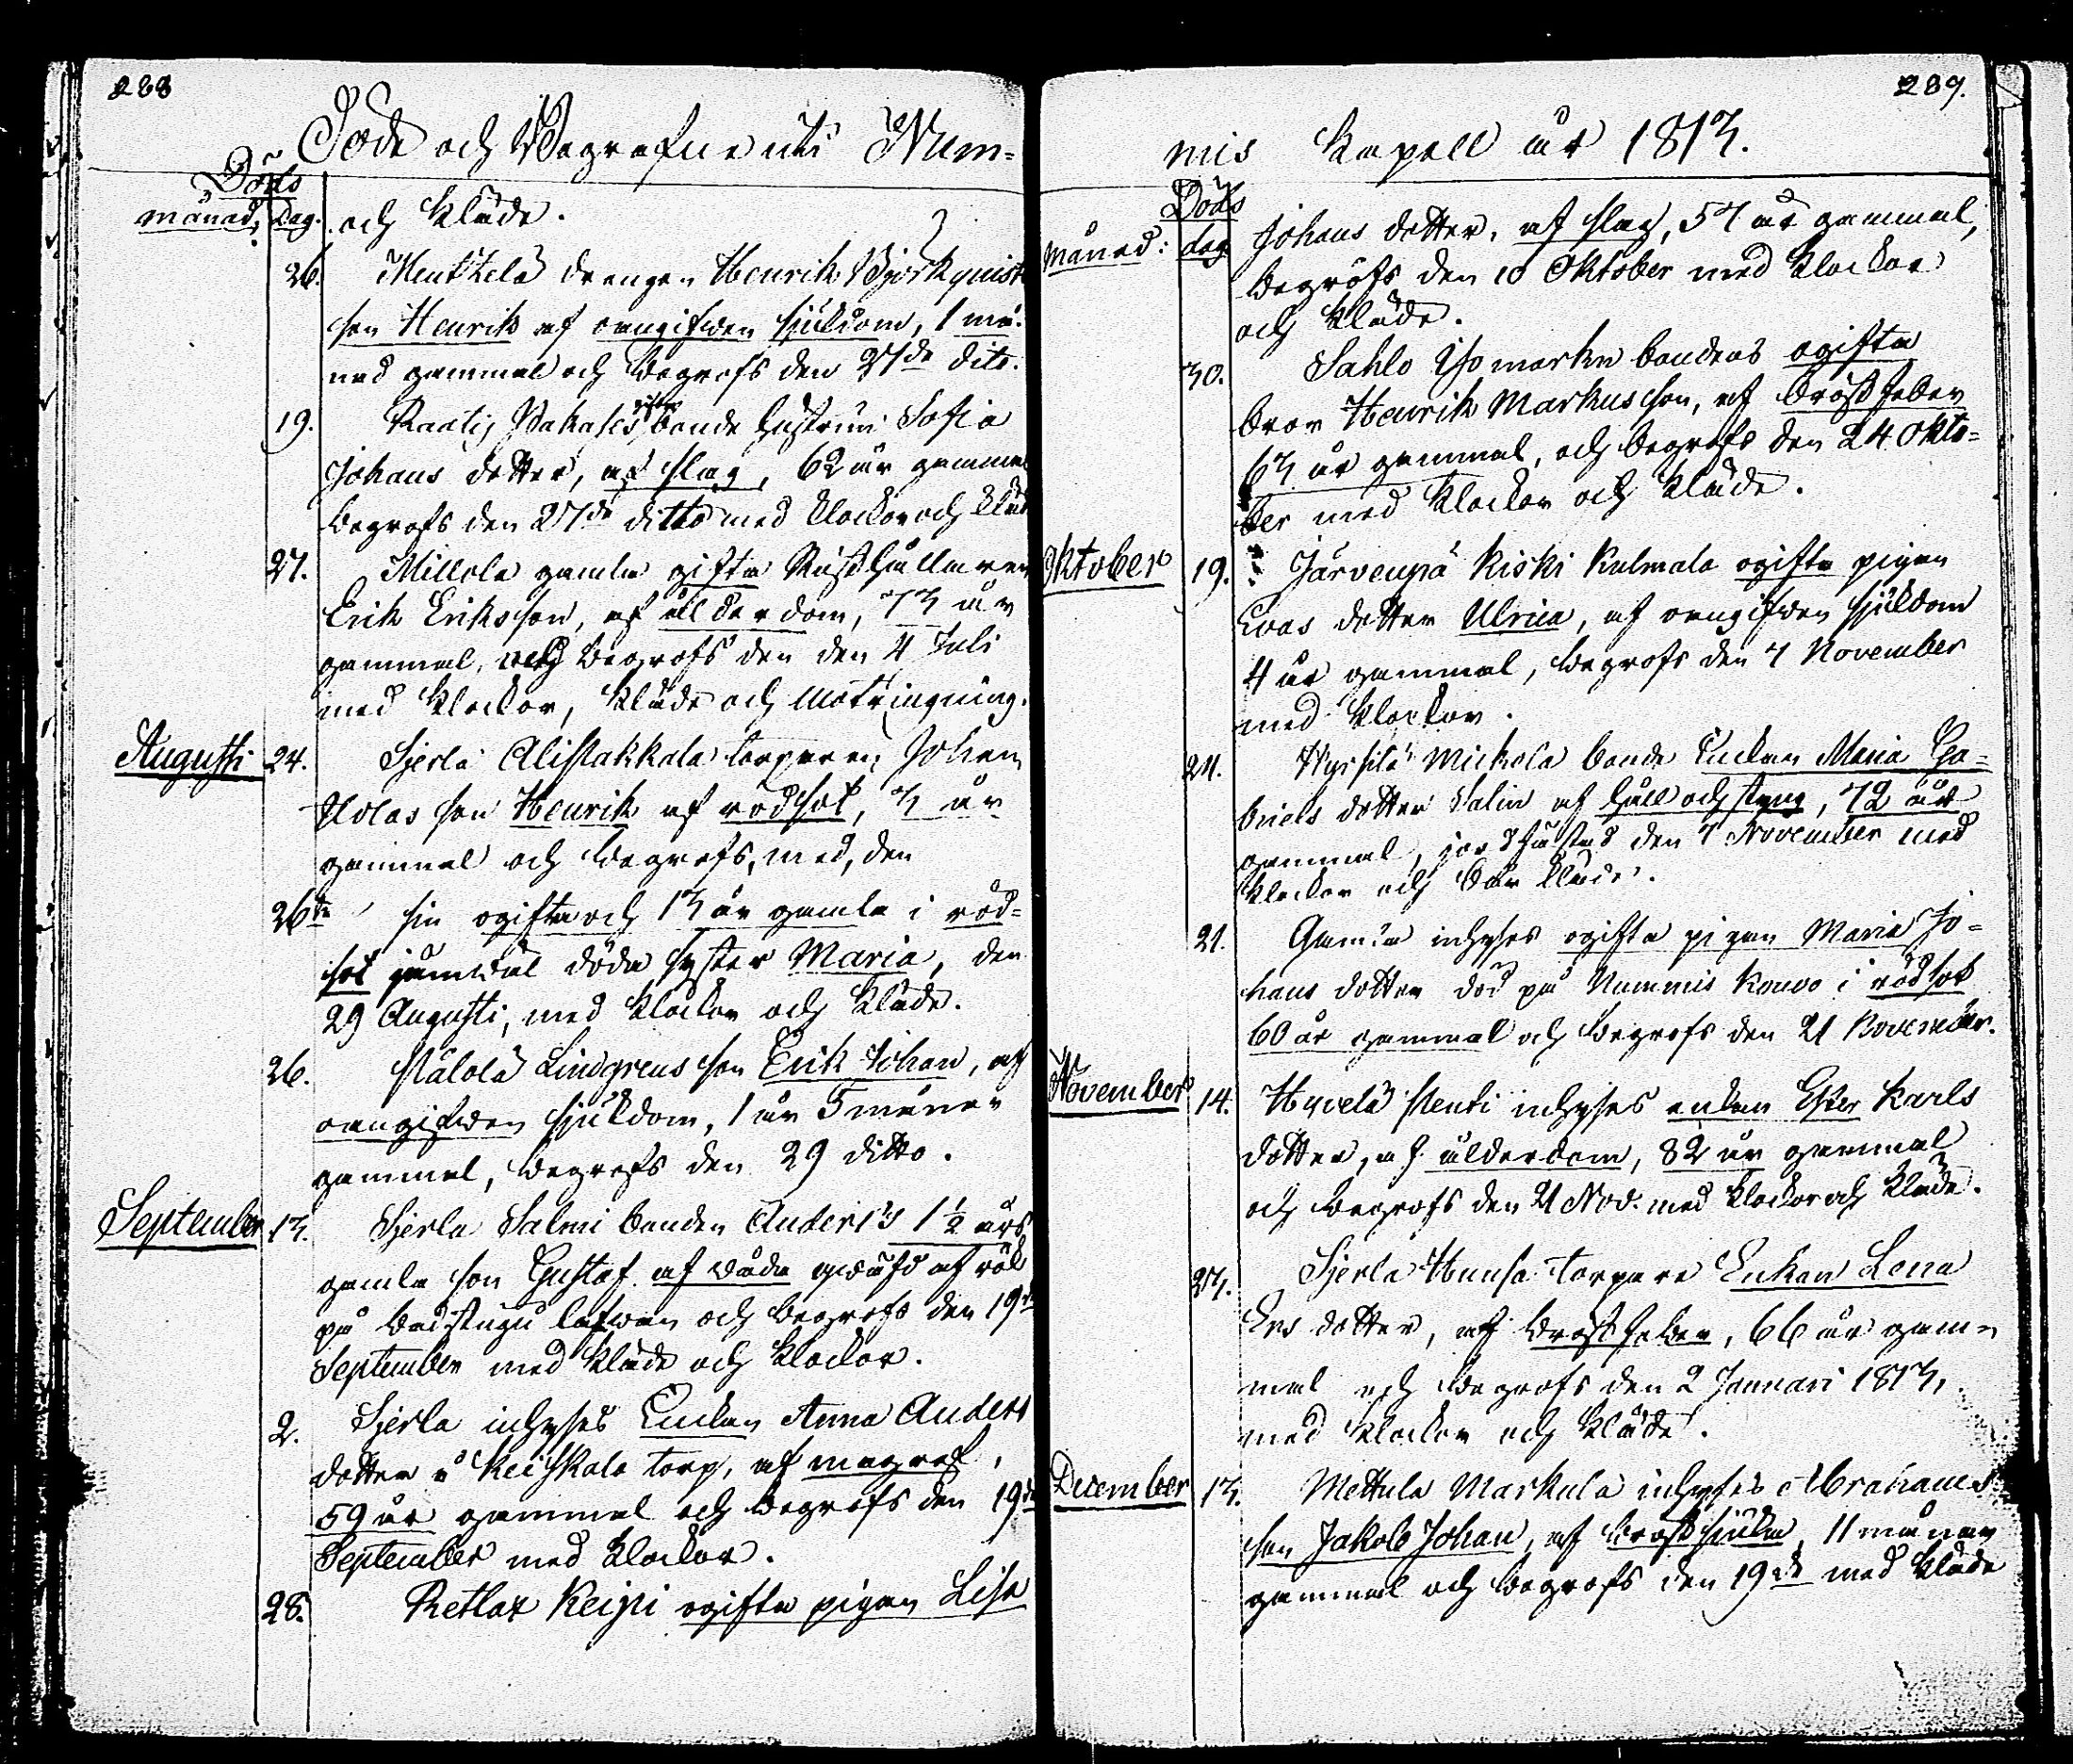 288
Döde och Begrafne uti Num-
Döds
månad, Dag.
och kläde.
26. Menkkelä drängen Henrik Björkquist
son Henrik af oangifven sjukdom, 1 må-
nad gammal och begrofs den 27de dito.
19. Raatis gifta bonde hustrun Sofia
Johans dotter, af slag, 62 år gammal
begrofs den 27de ditto med klockor och kläd
27. Millola gamla gifta Rusthållaren
Erik Eriksson, af ålderdom, 73 år
gammal, och begrofs den den 4 Juli
med klockor, kläde och motringning.
Augusti 24. Sjerlä Alistakkala torparen Johan
son Henrik af rödsot, 3 år
gammal och begrofs, med, den
26te sin ogifta och 13 år gamla i röd-
sot jämväl döda syster Maria, den
29 Augusti, med klockor och kläde.
26. Pälölä Lindgrens son Erik Johan, af
oangifven sjukdom, 1 år 5 måner
gammal, begrofs den 29 ditto.
September 13. Sjerla Salmi bonden Anders's 1½ års
gamla son Gustaf af våda qväfd af rök
på badstugu lafven och begrofs den 19de
September med kläde och klockor.
2. Sjerla inhyses Enckan Anna Anders
dotter å Keiskala torp, af magref,
59 år gammal och begrofs den 19de
September med klockor.
28. Retlax Keipi ogifta pigan Lisa
289.
mis Kapell år 1813.
Döds
månad: dag
Johans dotter, af slag, 57 år gammal,
begröfs den 10 Oktober med klockor
och kläde.
30. Sahlo Isomarku bondens ogifta
bror Henrik Markus son, af bröstfeber
63 år gammal, och begrofs den 24 Okto-
ber med klockor och kläde.
Oktober 19. Järvenpä Kiski Kulmala ogifta pigan
Evas dotter Ulrica, af oangifven sjukdom
4 år gammal, begrofs den 7 November
med klockor.
24. Hyrsilä Mickola bonde Enckan Maria Ga-
briels dotter Salin af håll och styng, 72 år
gammal, jordfästad den 7 November med
klockor och bår kläde.
21. Gamla inhyses ogifta pigan Maria Jo-
hans dotter död på Nummis Kouvo i rödsot
60 år gammal och begrofs den 21 November.
November 14. Hyvelä Stenti inhyses enkan Ester Karls
dotter, af ålderdom, 82 år gammal
och begrofs den 21 Nov. med klockor och kläde.
27. Sjerla Hunsa Torpare Enkan Lena
Ers dotter, af bröstfeber, 66 år gam-
mal och begrofs den 2 Januari 1813,
med klockor och kläde.
December 13. Mettula Markula inhyses Abrahams
son Jakob Johan, af bröstsjuka, 11 månan
gammal och begrofs den 19de med kläde